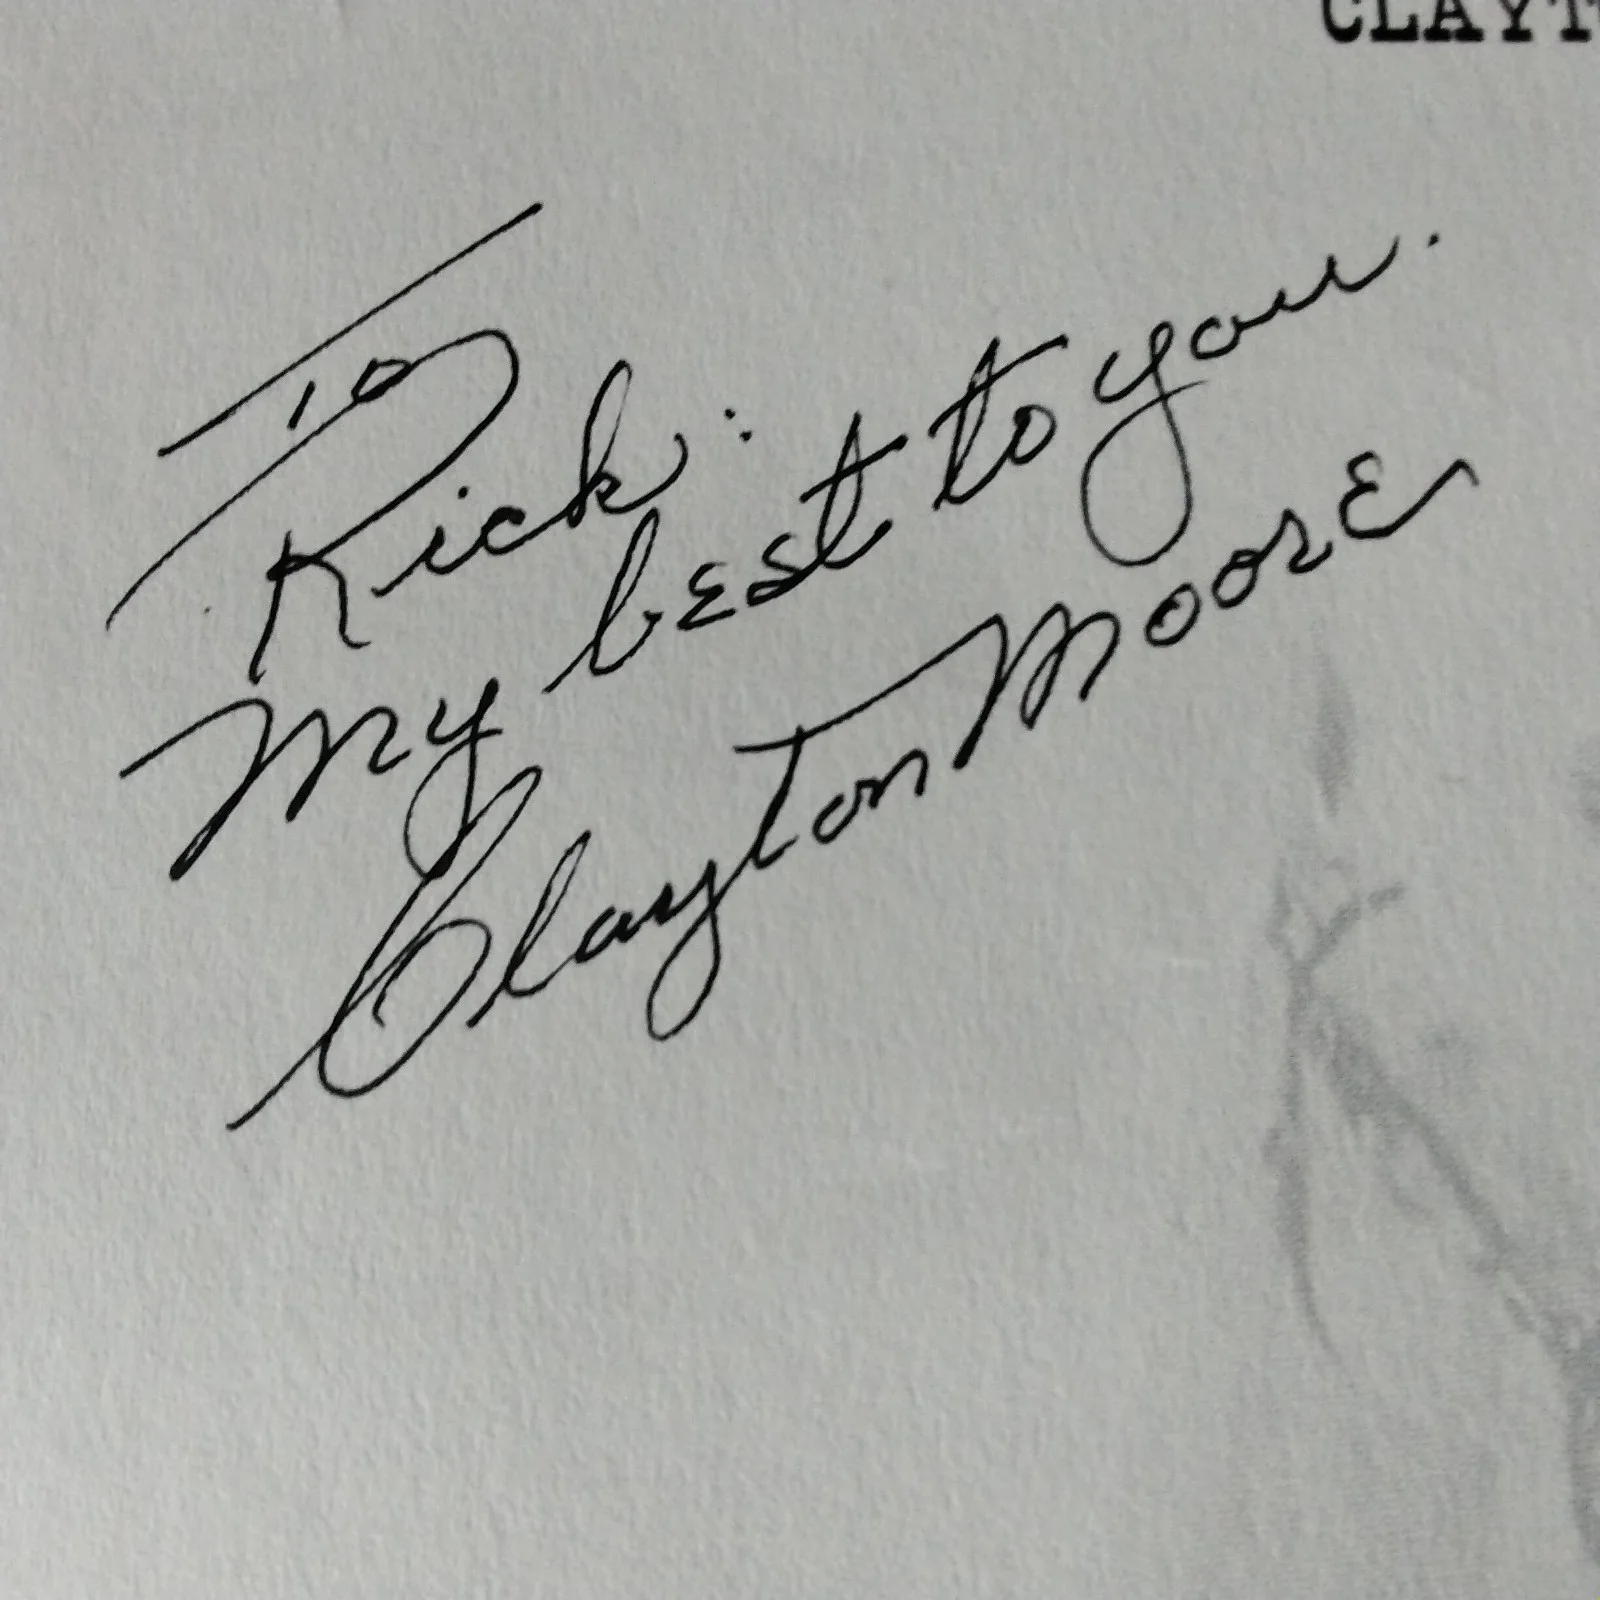 CLAYT
To
Rick:
My best to you.
Clayton Moore